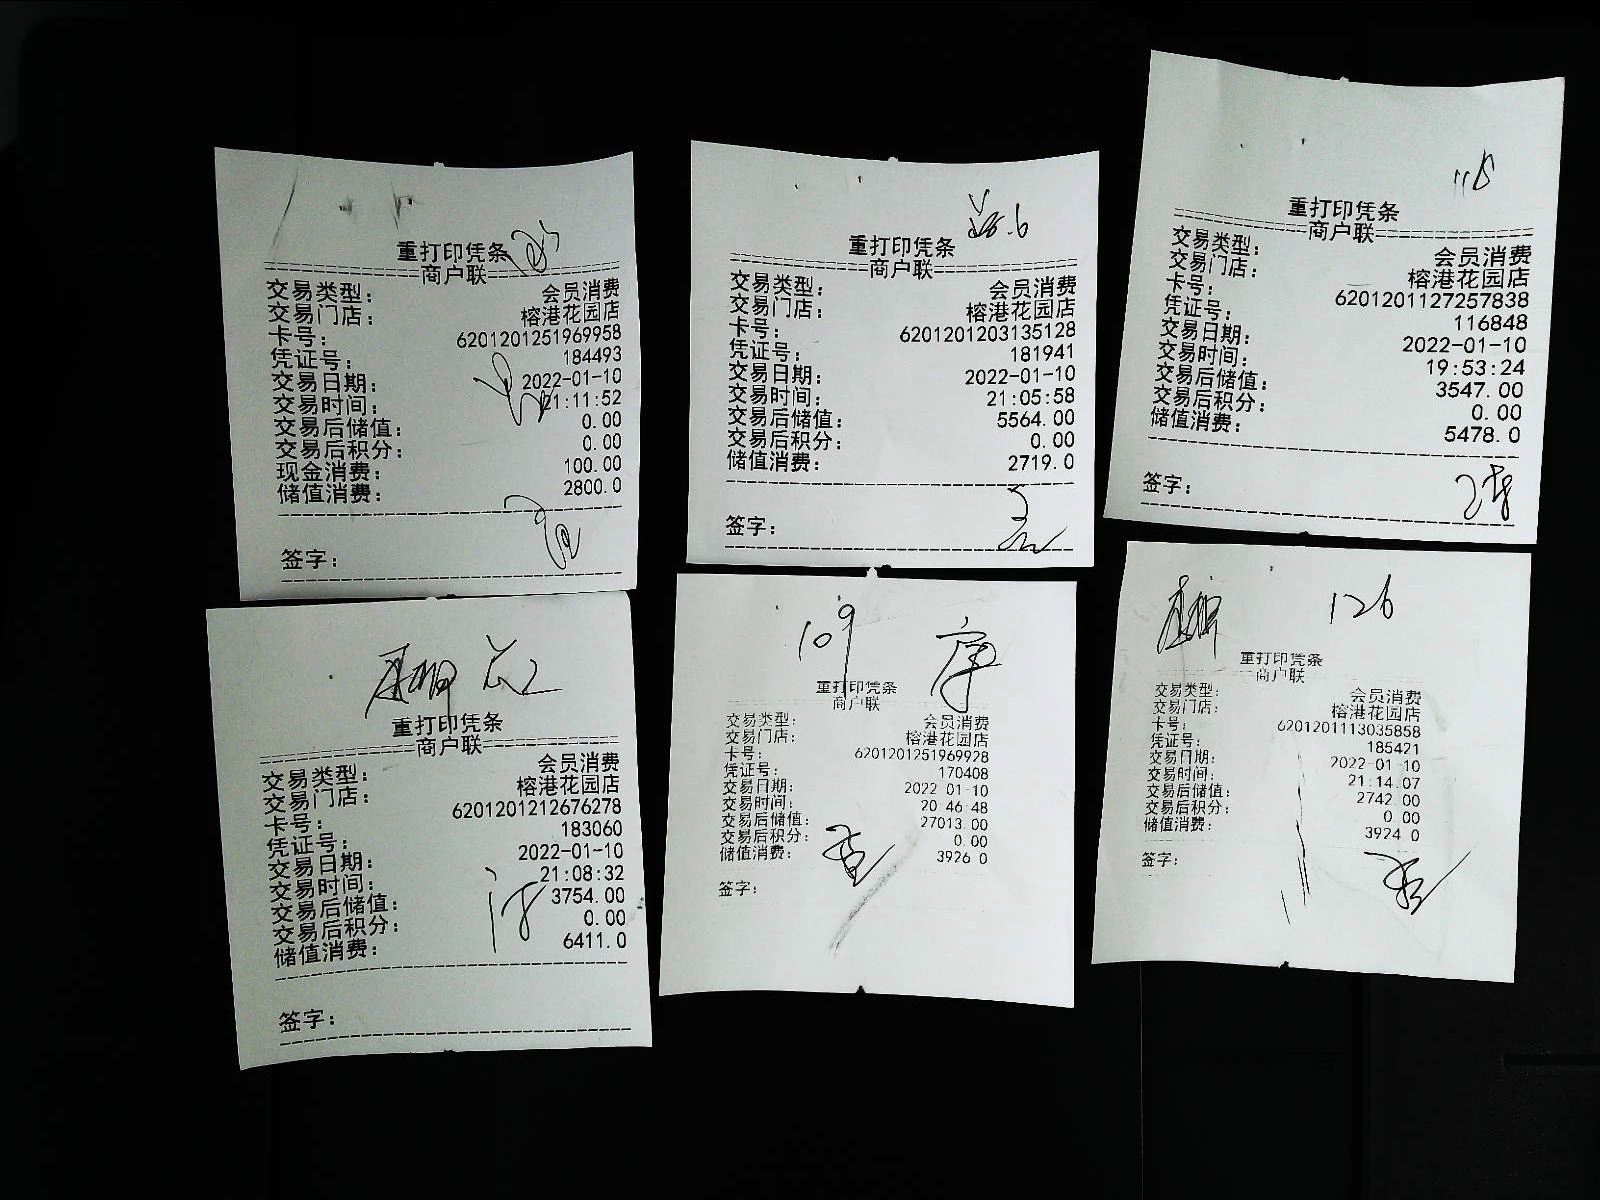 重打印凭条
商户联
交易类型: 会员消费
交易门店: 榕港花园店
卡号: 6201201251969958
凭证号: 184493
交易日期: 2022-01-10
交易时间: 21:11:52
交易后储值: 0.00
交易后积分: 0.00
现金消费: 100.00
储值消费: 2800.0
签字:
重打印凭条
商户联
交易类型: 会员消费
交易门店: 榕港花园店
卡号: 6201201203135128
凭证号: 181941
交易日期: 2022-01-10
交易时间: 21:05:58
交易后储值: 5564.00
交易后积分: 0.00
储值消费: 2719.0
签字:
118
重打印凭条
商户联
交易类型: 会员消费
交易门店: 榕港花园店
卡号: 6201201127257838
凭证号: 116848
交易日期: 2022-01-10
交易时间: 19:53:24
交易后储值: 3547.00
交易后积分: 0.00
储值消费: 5478.0
签字:
重打印凭条
商户联
交易类型: 会员消费
交易门店: 榕港花园店
卡号: 6201201212676278
凭证号: 183060
交易日期: 2022-01-10
交易时间: 21:08:32
交易后储值: 3754.00
交易后积分: 0.00
储值消费: 6411.0
签字:
109
重打印凭条
商户联
交易类型: 会员消费
交易门店: 榕港花园店
卡号: 6201201251969928
凭证号: 170408
交易日期: 2022 01-10
交易时间: 20 46 48
交易后储值: 27013 00
交易后积分: 0.00
储值消费: 3926 0
签字:
126
重打印凭条
商户联
交易类型: 会员消费
交易门店: 榕港花园店
卡号: 6201201113035858
凭证号: 185421
交易日期: 2022-01-10
交易时间: 21:14.07
交易后储值: 2742 00
交易后积分: 0 00
储值消费: 3924 0
签字: